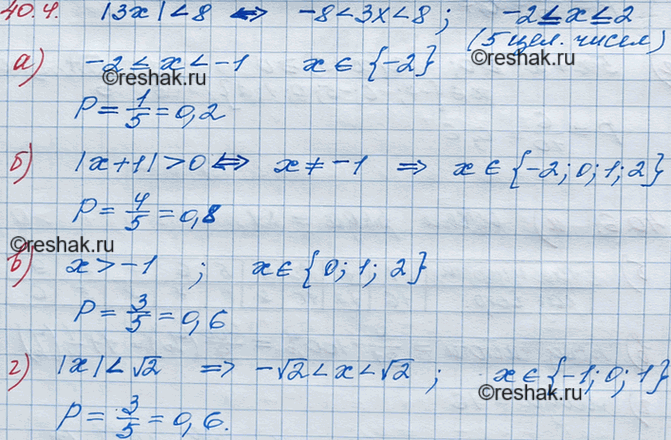 40.4. |3x| < 8 <=> -8 < 3x < 8; -2 ≤ x ≤ 2
(5 цел. чисел)
а) -2 ≤ x < -1 x ∈ {-2}
©reshak.ru ©reshak.ru
P = 1/5 = 0,2
б) |x+1| > 0 <=> x ≠ -1 => x ∈ {-2; 0; 1; 2}
P = 4/5 = 0,8
©reshak.ru
в) x > -1 ; x ∈ {0; 1; 2}
P = 3/5 = 0,6
г) |x| < √2 => -√2 < x < √2 ; x ∈ {-1; 0; 1}
©reshak.ru
P = 3/5 = 0,6.